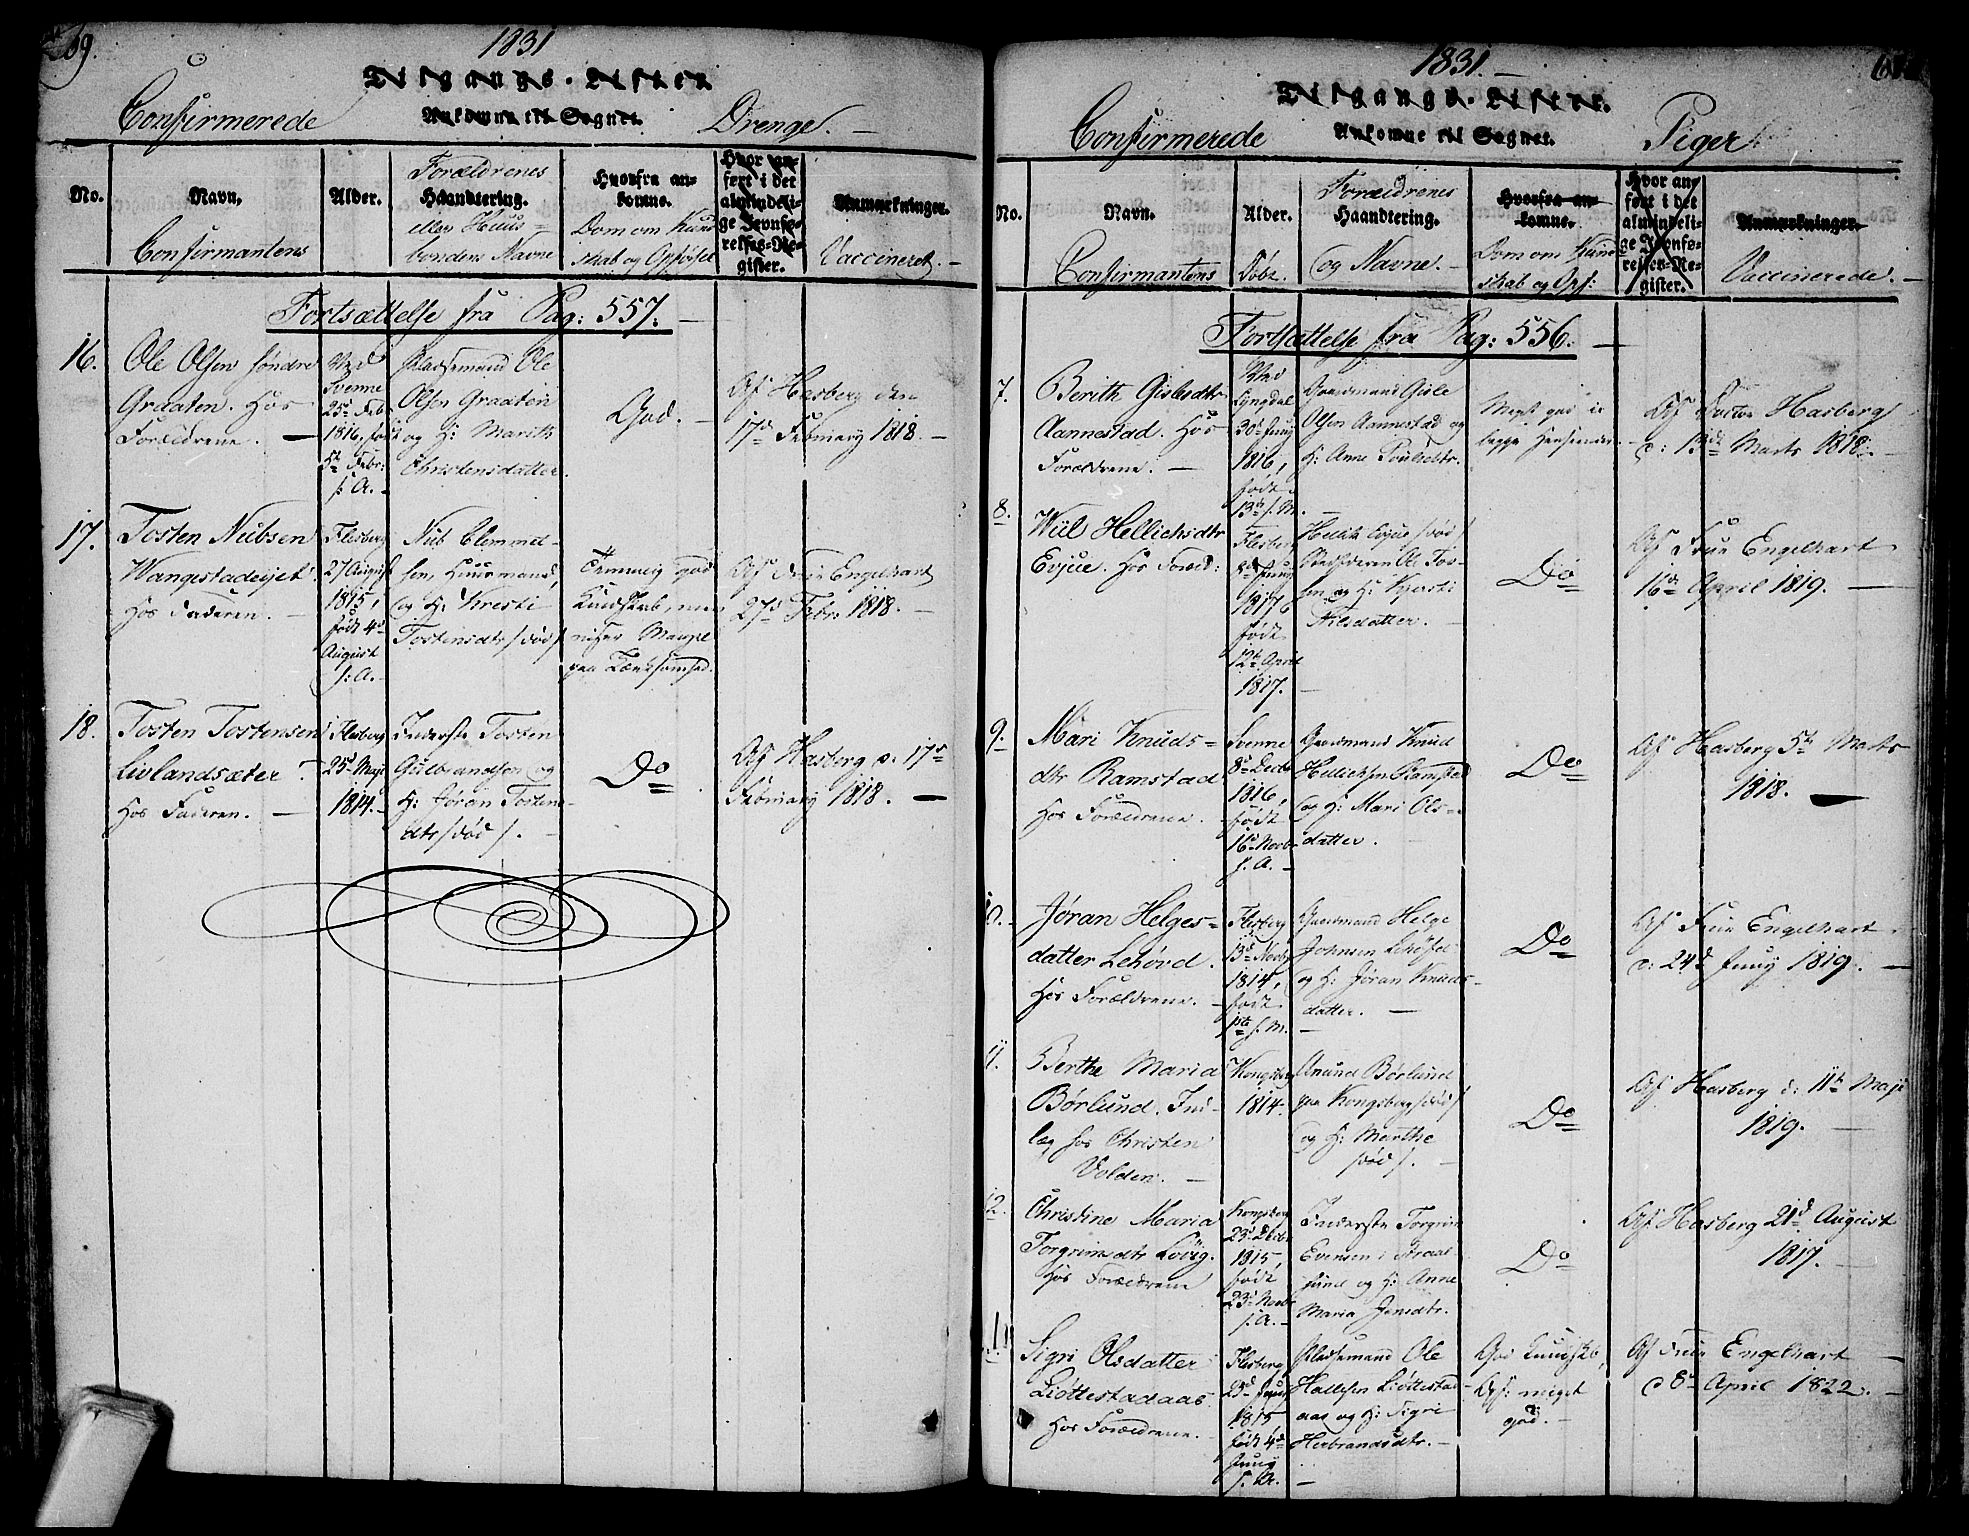 1831
Tilgangs-Lister
Confirmerede Ankomne til Sognet. Drenge. —
No.
Navn.
Confirmantens
Alder.
Forældrenes
Haandtering.
eller Huus=
bondens Navne
Hvorfra an-
komne.
Dom om Kund
skab og Opførsel
Hvor an-
ført i det
almindeli-
ge Jevnfø-
relses-Re-
gister.
Anmærkninger.
Vaccineret. —
Fortsættelse fra Pag: 557. —
16.
Ole Olsen søndre
Graaten. Hos
Forældrene. —
Ved
Svenne
25d Feb:
1816, født
5te Febr:
s: A. —
Pladsemand Ole
Olsen Graaten
og H: Marith
Christensdatter.
God. —
Af Hasberg den
17de February 1818. —
17.
Tosten Nubsen
Wangestadeijet.
Hos Faderen. —
Flesberg
27 August
1815,
født 4d
August
s: A. —
Nub Clemmet-
sen, Huusmand,
og H: Kresti
Tostensdtr /:død:/
Temmelig god
Kundskab, men
nogen Mangel
paa Tænksomhed.
Af Frue Engelhart
27d Febr. 1818. —
18.
Tosten Tostensen
Livlandsæter.
Hos Faderen. —
Flesberg
25d Maji
1814. —
Inderste Tosten
Gulbrandsen og
H: Jøran Tostens-
dtr /:død:/. —
Do
Af Hasberg d: 17de
February 1818. —
1831. —
Tilgangs-Lister.
Confirmerede Ankomne til Sognet. Piger
No.
Navn.
Confirmantens
Alder.
Døbt.
Forældrenes
Haandtering.
og Navne. —
Hvorfra an-
komne.
Dom om Kund
skab og Opf:
Hvor an-
ført i det
almindeli-
ge Jevnfø-
relses-Re-
gister.
Anmærkninger.
Vaccinerede. —
Fortsættelse fra Pag: 556. —
7.
Berith Gislesdtr
Aannestad. Hos
Forældrene. —
Ved
Lyngdal
30d Juny
1816,
født
13de s: M. —
Gaardmand Gisle
Olsen Aannestad og
H: Anne Poulsdtr.
Meget god i
begge Henseender. —
Af Doctor Hasberg
d: 13de Marts 1818. —
8.
Wiil Hellichsdtr
Evjue. Hos Foræld:
Flesberg
8de Juny
1817,
født
12te April
1817. —
Hellik Evjue /:død:/
Stedfaderen Ole Tos-
sen og H: Kjersti
Nilsdatter. —
Do
Af Frue Engelhart
16de April 1819. —
9.
Mari Knuds=
dtr Ramstad
Hos Forældrene.
Svenne
8de Decbr
1816,
født
16de Novbr
s: A. —
Gaardmand Knud
Hellichsen Ramstad
og H: Mari Ols=
datter. —
Do
Af Hasberg 5te Marts
1818. —
10. —
Jøran Helges=
datter Lehovd.
Hos Forældrene. —
Flesberg
13de Novbr
1814,
født
1ste s: M. —
Gaardmand Helge
Johnsen Lehovd
og H: Jøran Knuds-
datter. —
Do
Af Frue Engelhart
d: 24de Juny 1819. —
11.
Berthe Maria
Børlund. Ind-
læg hos Christen
Volden. —
Kongsberg
1814.
Amund Børlund
paa Kongsberg /:død:/
og H: Marthe
/:død:/. —
Do
Af Hasberg d: 11te Maji
1819. —
12.
Christine Maria
Torgrimsdtr Lovig.
Hos Forældrene
Kongsberg
25d Decbr.
1815,
født
23d Novbr
s: A. —
Inderste Torgrim
Evensen i Straal-
sund og H: Anne
Maria Jensdtr.
Do
Af Hasberg 21de August
1817. —
Sigri Olsdatter
Liøttestadaas
Hos Forældrene. —
Flesberg
25d Juny
1815
født 4de
Juny
s: A. —
Pladsemand Ole
Hallesen Liøttestad-
aas og H: Sigri
Herbrandsdtr. —
God Kundskb,
Opf: meget
god. —
Af Frue Engelhart —
d 8de April 1822. —